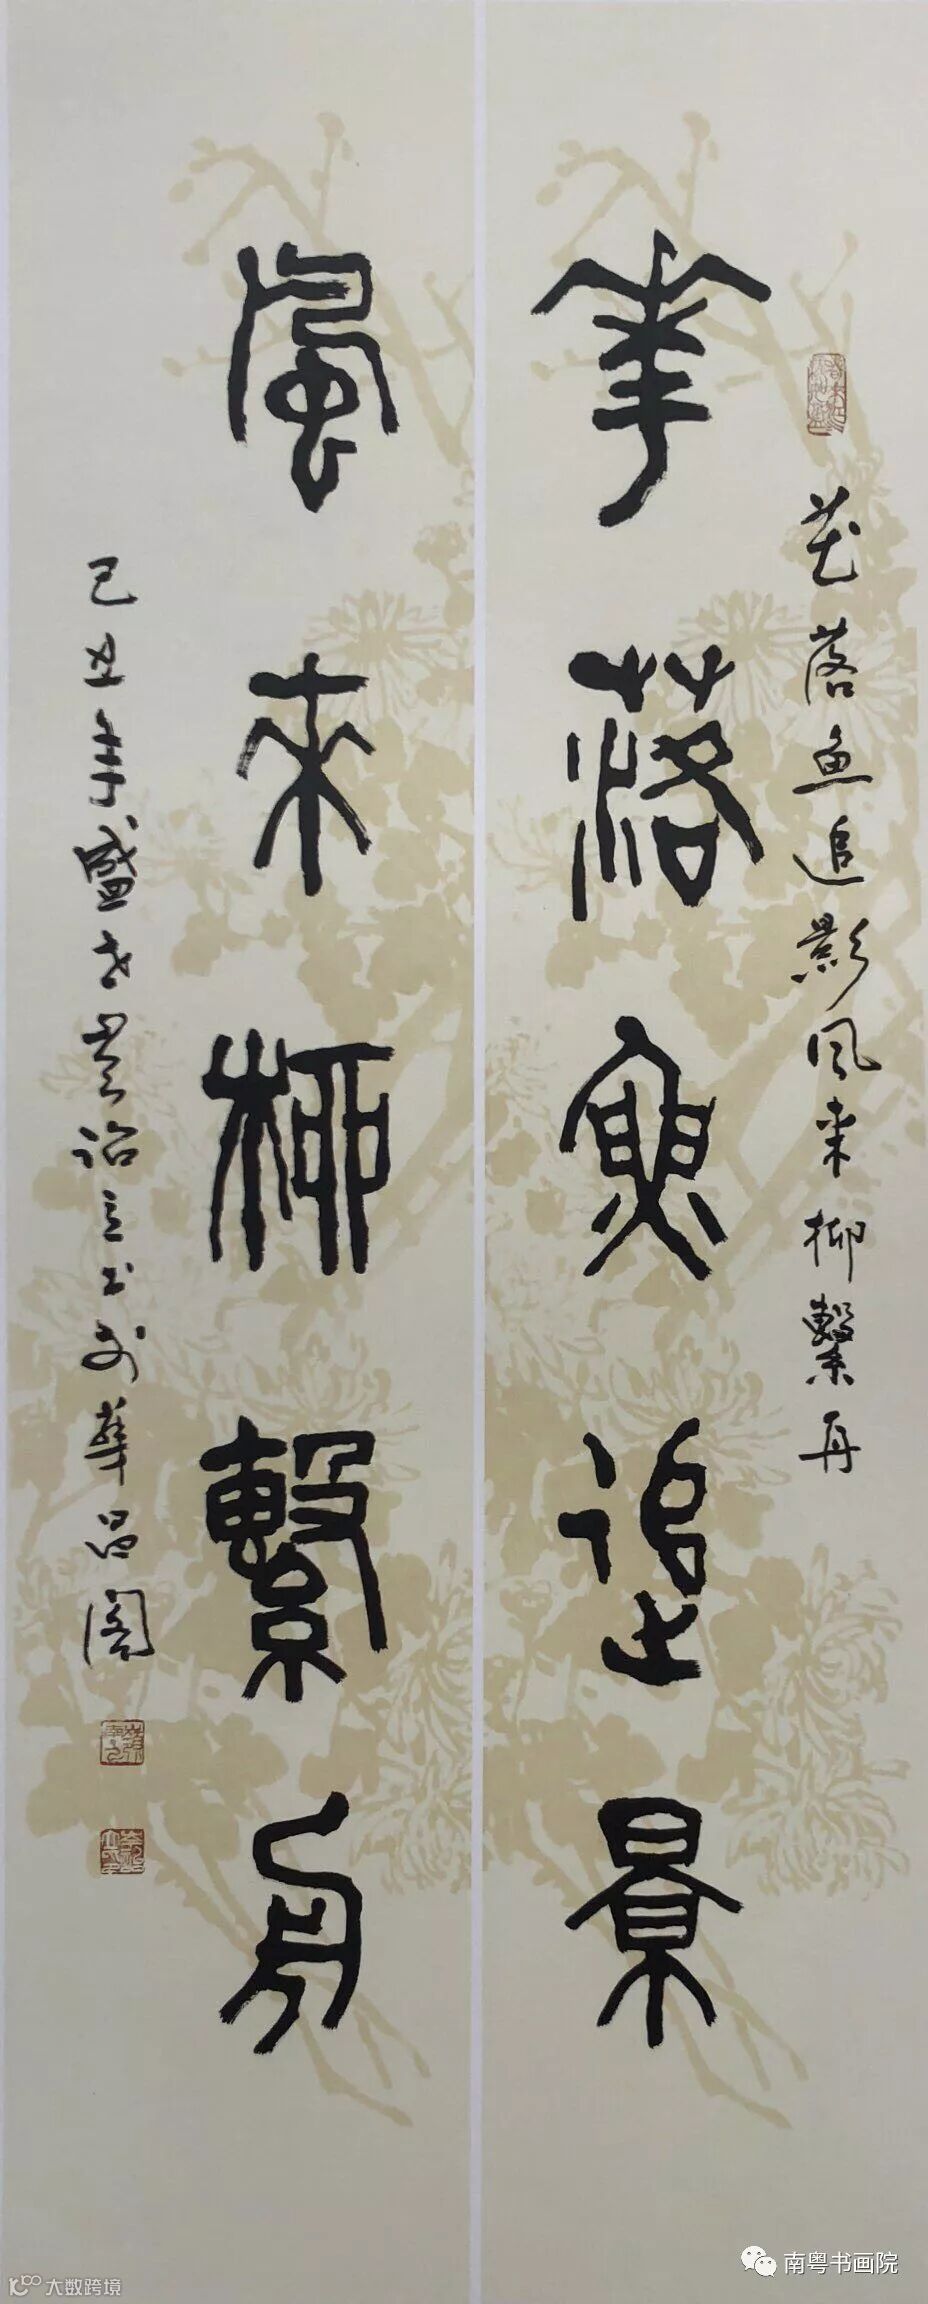 花落鱼追影风来柳繫舟
華落魚追景
風來柳繫舟
己丑年盛书於華昌阁
南粤书画院
大数跨境